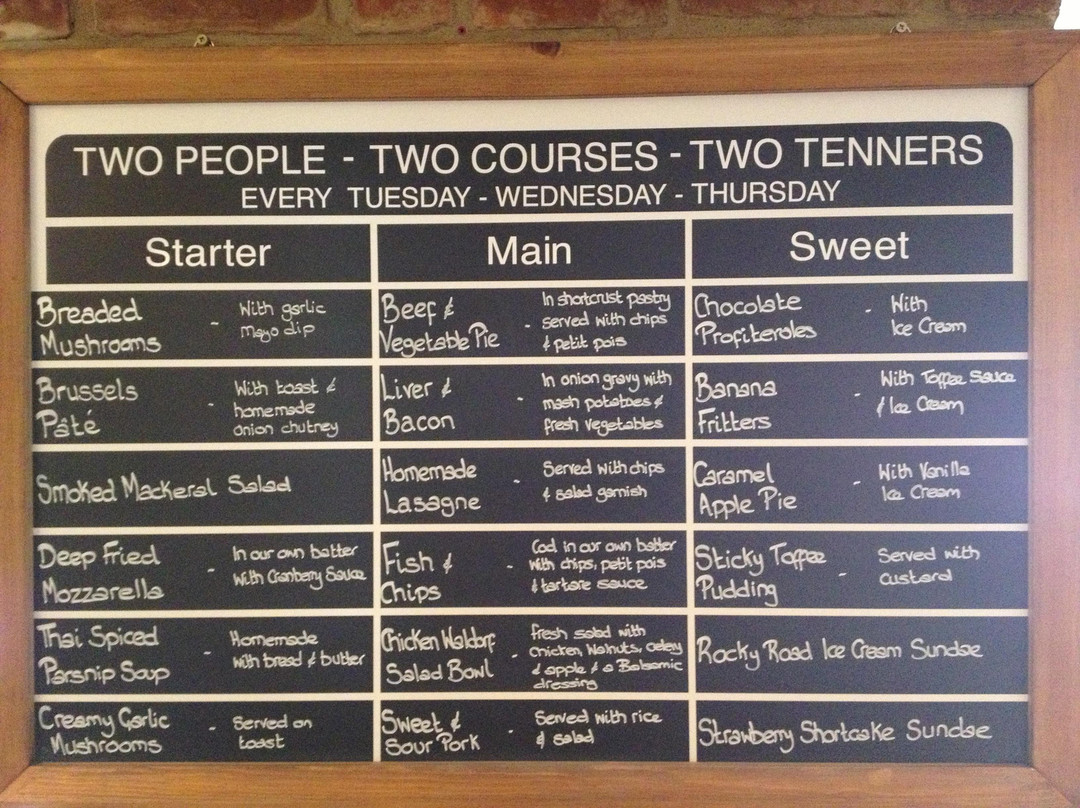 TWO PEOPLE - TWO COURSES - TWO TENNERS
EVERY TUESDAY - WEDNESDAY - THURSDAY
Starter
Breaded
Mushrooms
- With garlic
mayo dip
Brussels
Pâté
- With toast &
homemade
onion chutney
Smoked Mackeral Salad
Deep Fried
Mozzarella
- In our own batter
with Cranberry Sauce
Thai Spiced
Parsnip Soup
- Homemade
with bread & butter
Creamy Garlic
Mushrooms
- Served on
toast
Main
Beef &
Vegetable Pie
- In shortcrust pastry
served with chips
& petit pois
Liver &
Bacon
- In onion gravy with
mash potatoes &
fresh vegetables
Homemade
Lasagne
- Served with chips
& salad garnish
Fish &
Chips
- Cod in our own batter
with chips, petit pois
& tartare sauce
Chicken Waldorf
Salad Bowl
- fresh salad with
chicken, Walnuts, celery
& apple & a Balsamic
dressing
Sweet &
Sour Pork
- Served with rice
& salad
Sweet
Chocolate
Profiteroles
- With
Ice Cream
Banana
Fritters
- With Toffee Sauce
& Ice Cream
Caramel
Apple Pie
- With Vanilla
Ice Cream
Sticky Toffee
Pudding
- Served with
custard
Rocky Road Ice Cream Sundae
Strawberry Shortcake Sundae